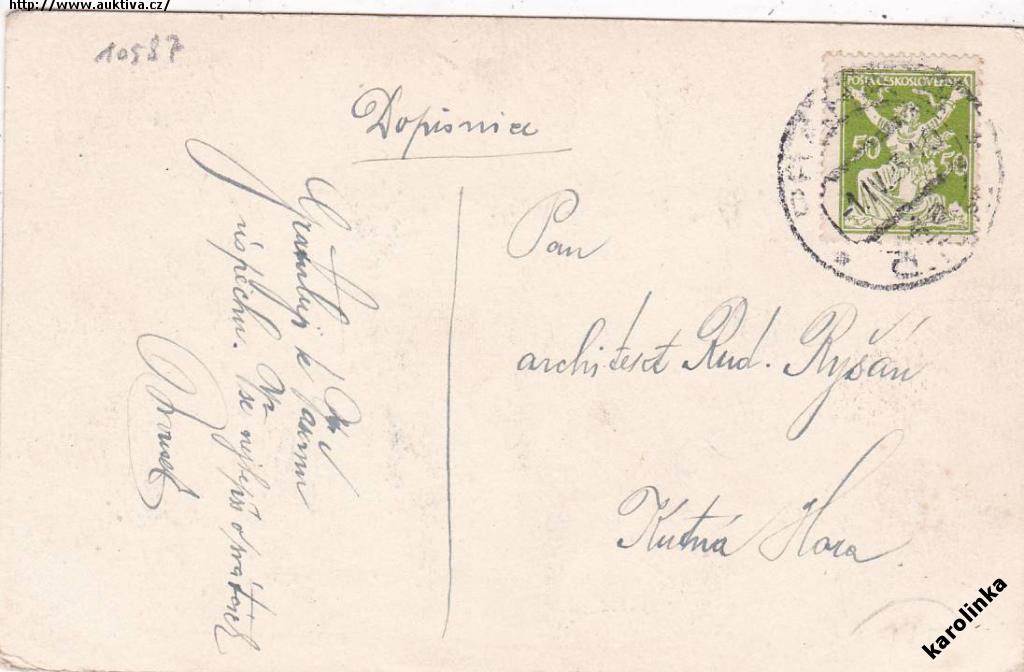 http://www.auktiva.cz/
10587
Dopisnica
POŠTA ČESKOSLOVENSKÁ
50 50
Gratuluji k Vašemu
úspěchu.
Vše nejlepší
Pan
architekt Rud. Ryšán
Kutná Hora
karolinka